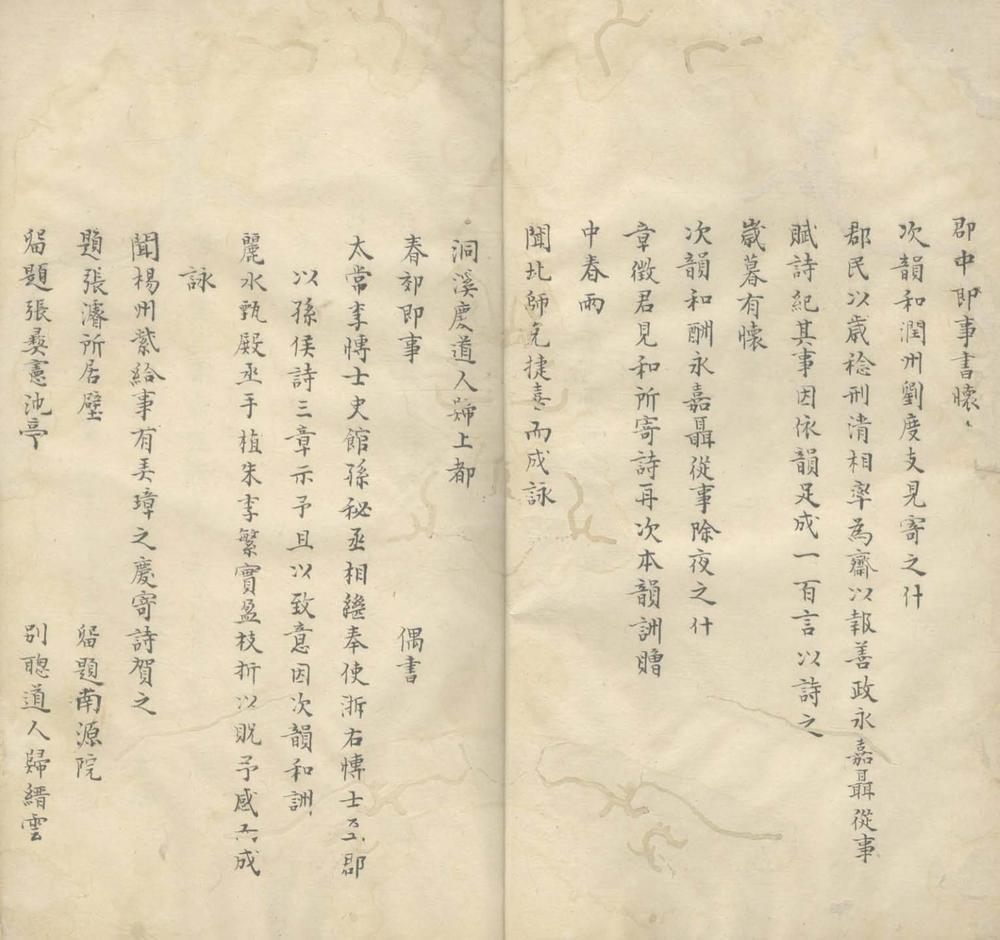 郡中即事書懷
次韻和潤州劉度支見寄之什
郡民以歲稔刑清相率為齋以報善政永嘉聶從事
賦詩紀其事因依韻足成一百言以詩之
歲暮有懷
次韻和酬永嘉聶從事除夜之什
章徵君見和所寄詩再次本韻詶贈
中春雨
聞北師克捷喜而成詠
洞溪慶道人歸上都
春郊即事 偶書
太常李博士史館孫秘丞相繼奉使浙右博士至郡
以孫侯詩三章示予且以致意因次韻和詶
麗水甄殿丞手植朱李繁實盈枝折以貺予感而成
詠
聞楊州紫給事有弄璋之慶寄詩賀之
題張濬所居壁 留題南源院
留題張彝憲池亭 別聰道人歸縉雲